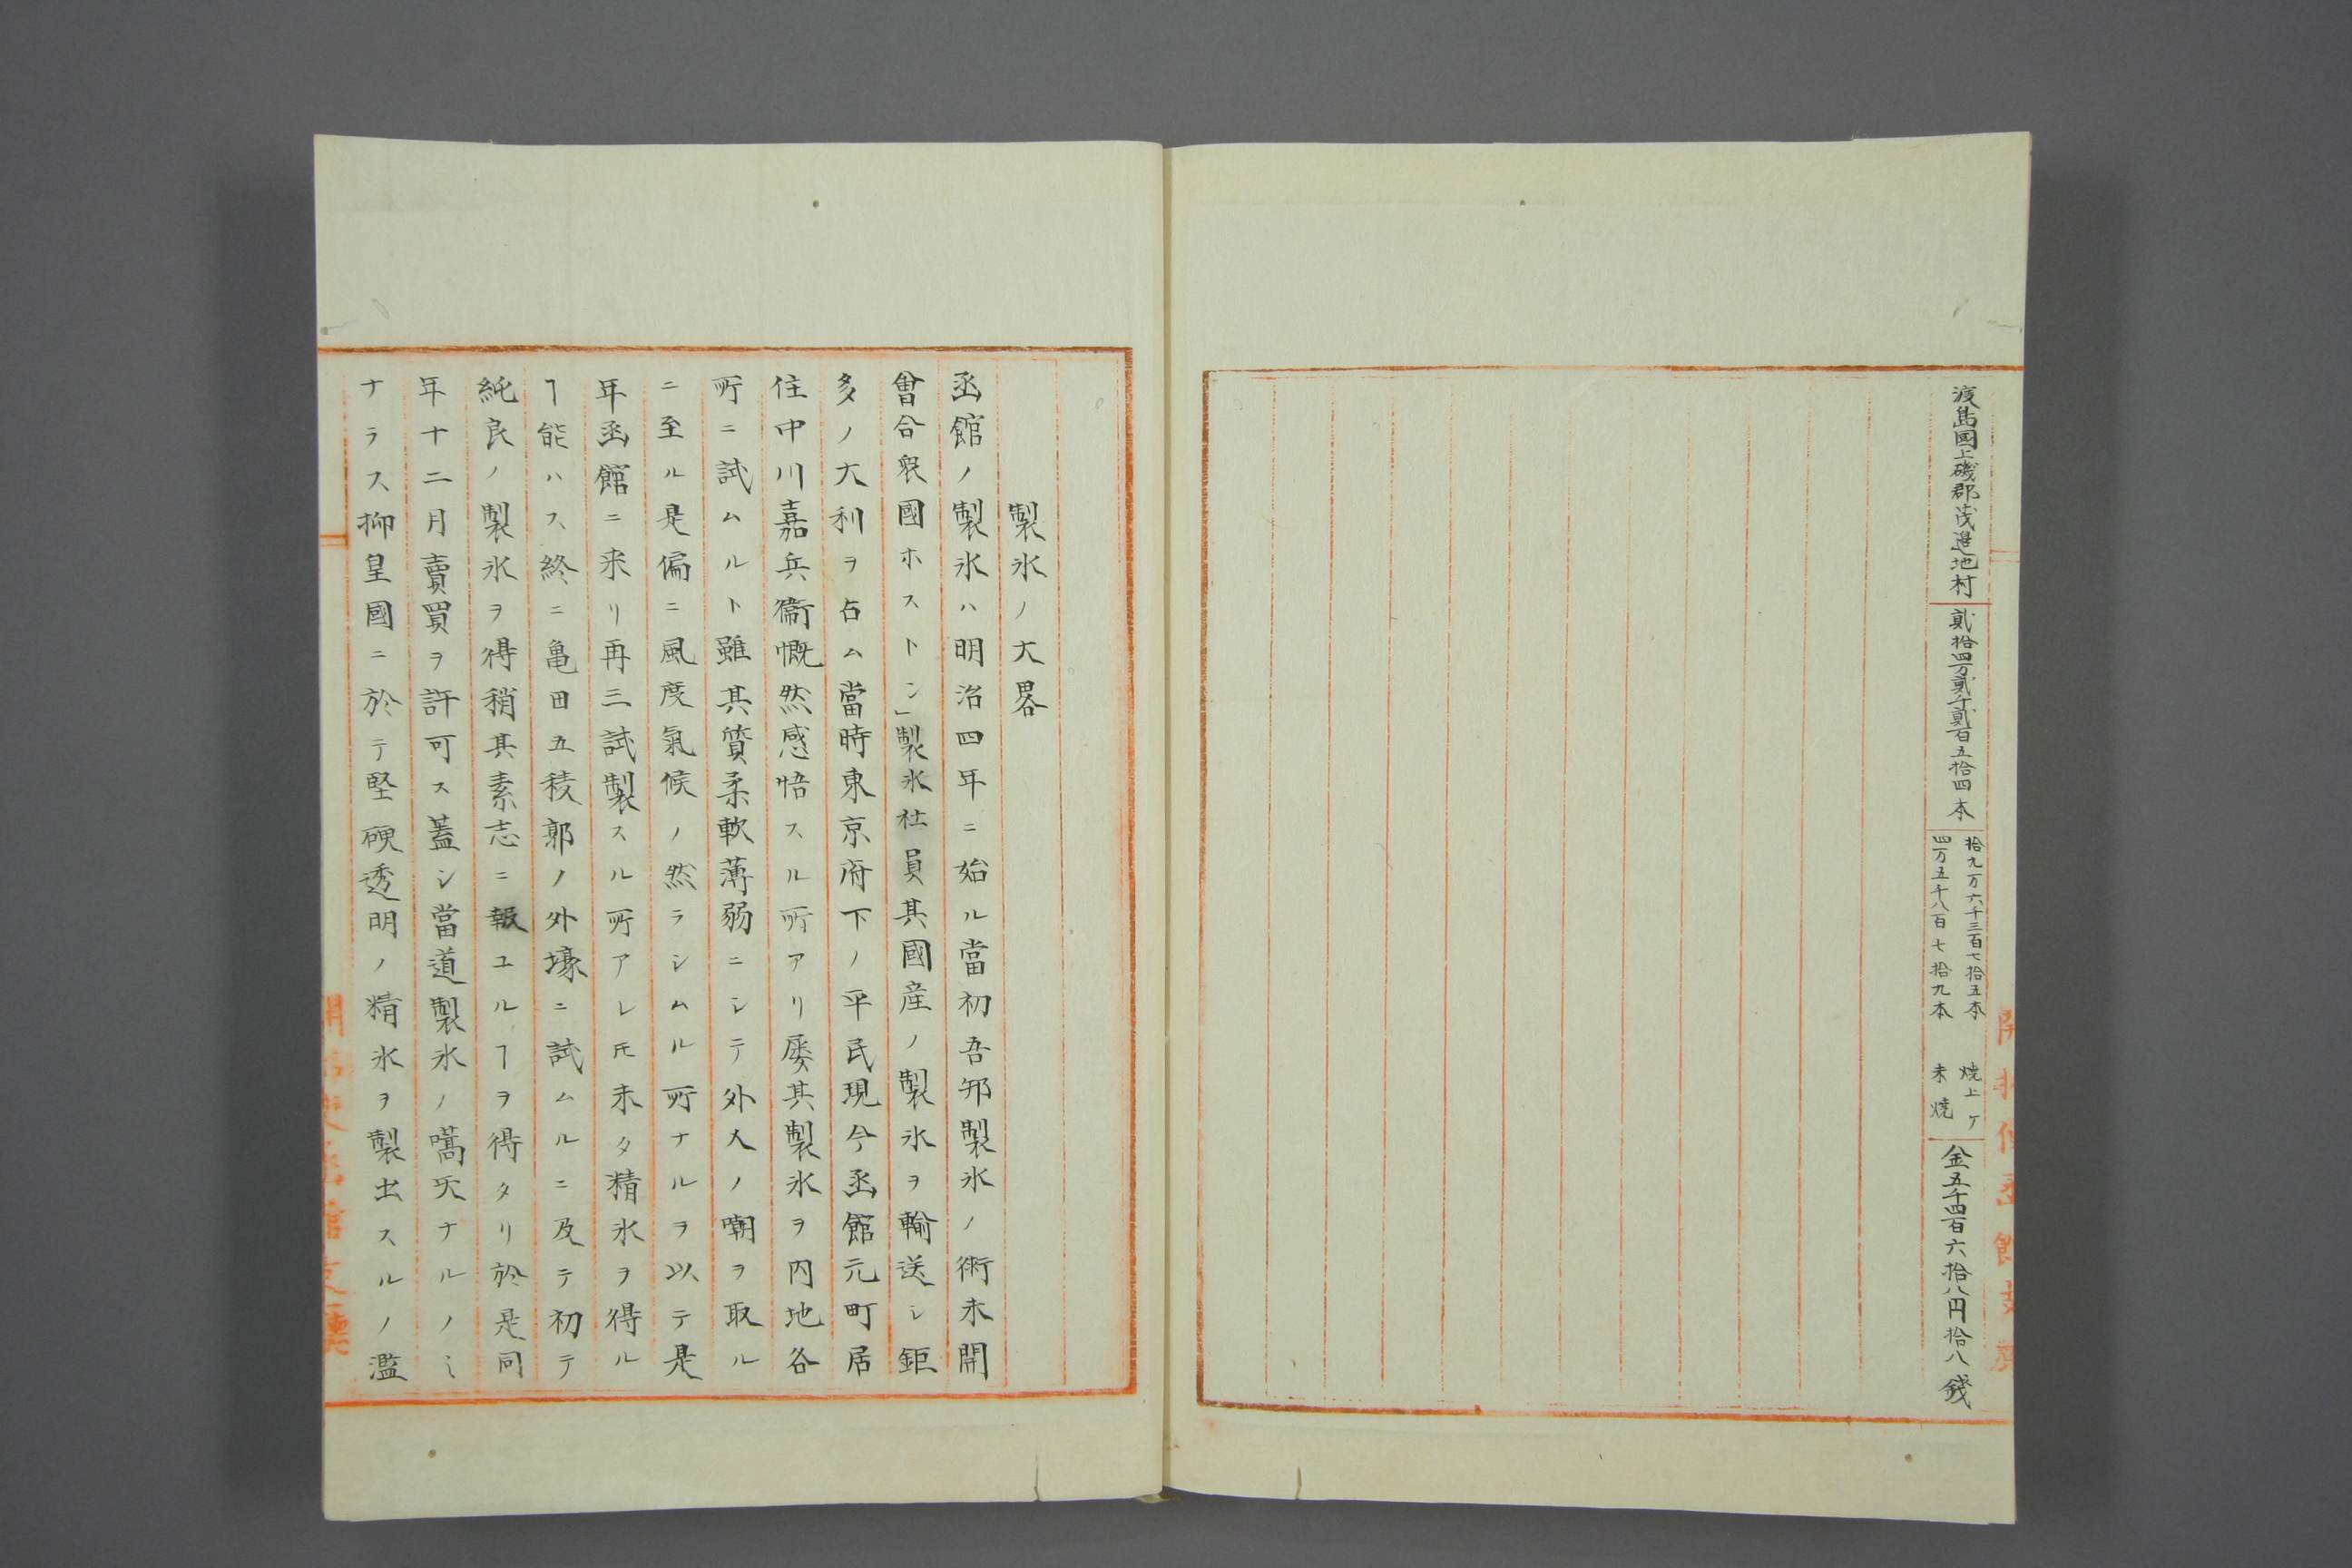 渡島國上磯郡茂邉地村
貳拾四万貳千貳百五拾四本
拾九万六千三百七拾五本 焼上ケ
四万五千八百七拾九本 未焼
金五千四百六拾八円拾八錢
製氷ノ大畧
函館ノ製氷ハ明治四年ニ始ル當初吾邦製氷ノ術未開
曽合衆國ホストン」製氷社員其國産ノ製氷ヲ輸送シ鉅
多ノ大利ヲ占ム當時東京府下ノ平民現今函館元町居
住中川嘉兵衞慨然感悟スル所アリ屡其製氷ヲ内地各
所ニ試ムルト雖其質柔軟薄弱ニシテ外人ノ嘲ヲ取ル
ニ至ル是偏ニ風度氣候ノ然ラシムル所ナルヲ以テ是
年函館ニ来リ再三試製スル所アレ𪜈未タ精氷ヲ得ル
ヿ能ハス終ニ亀田五稜郭ノ外壕ニ試ムルニ及テ初テ
純良ノ製氷ヲ得稍其素志ニ報ユルヿヲ得タリ於是同
年十二月賣買ヲ許可ス蓋シ當道製氷ノ嚆矢ナルノミ
ナラス抑皇國ニ於テ堅硬透明ノ精氷ヲ製出スルノ濫
開拓使函館支廳